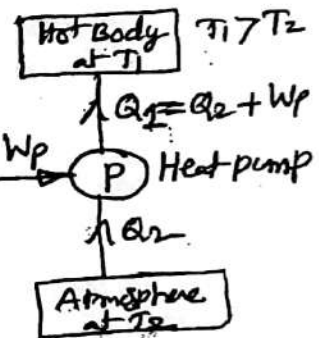 Hot Body
at T1
T1 > T2
Q1 = Q2 + Wp
Wp
P
Heat pump
Q2
Atmosphere
at T2